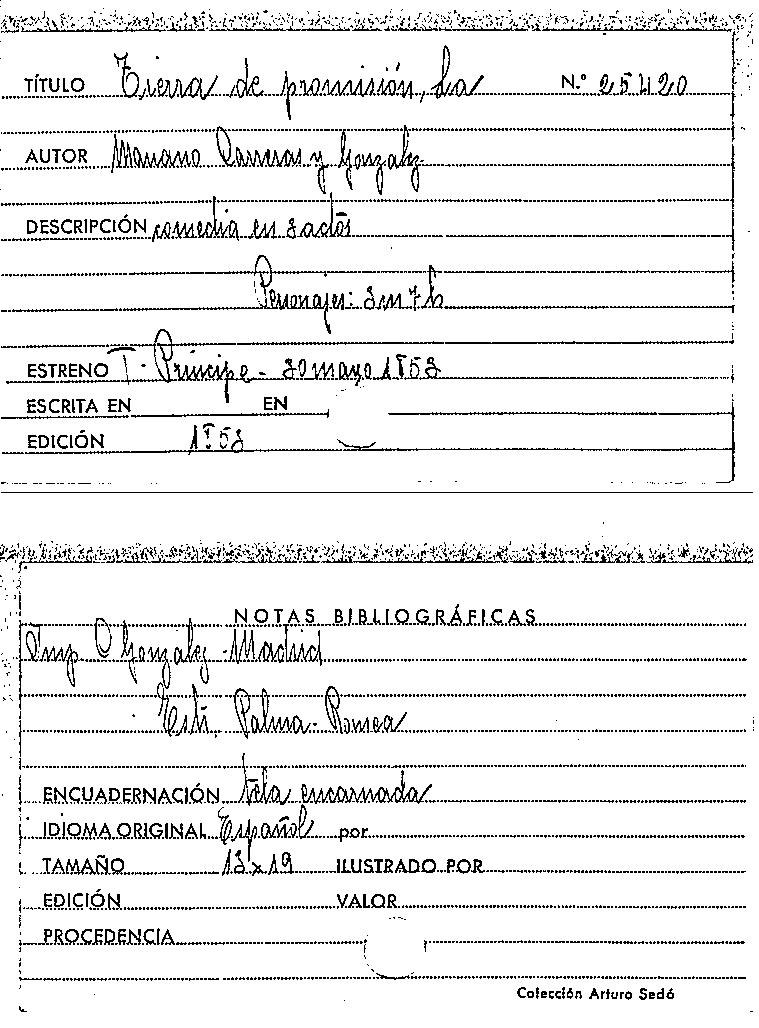 TÍTULO Tierra de promisión, La N.º 25420
AUTOR Mariano Carreras y González
DESCRIPCIÓN comedia en 3 actos
Personajes: 3 m 7 h
ESTRENO T. Príncipe - 30 mayo 1853
ESCRITA EN EN
EDICIÓN 1853
NOTAS BIBLIOGRÁFICAS
Imp C González - Madrid
Estr. Palma - Romea
ENCUADERNACIÓN tela encarnada
IDIOMA ORIGINAL Español por
TAMAÑO 13 x 19 ILUSTRADO POR
EDICIÓN VALOR
PROCEDENCIA
Colección Arturo Sedó